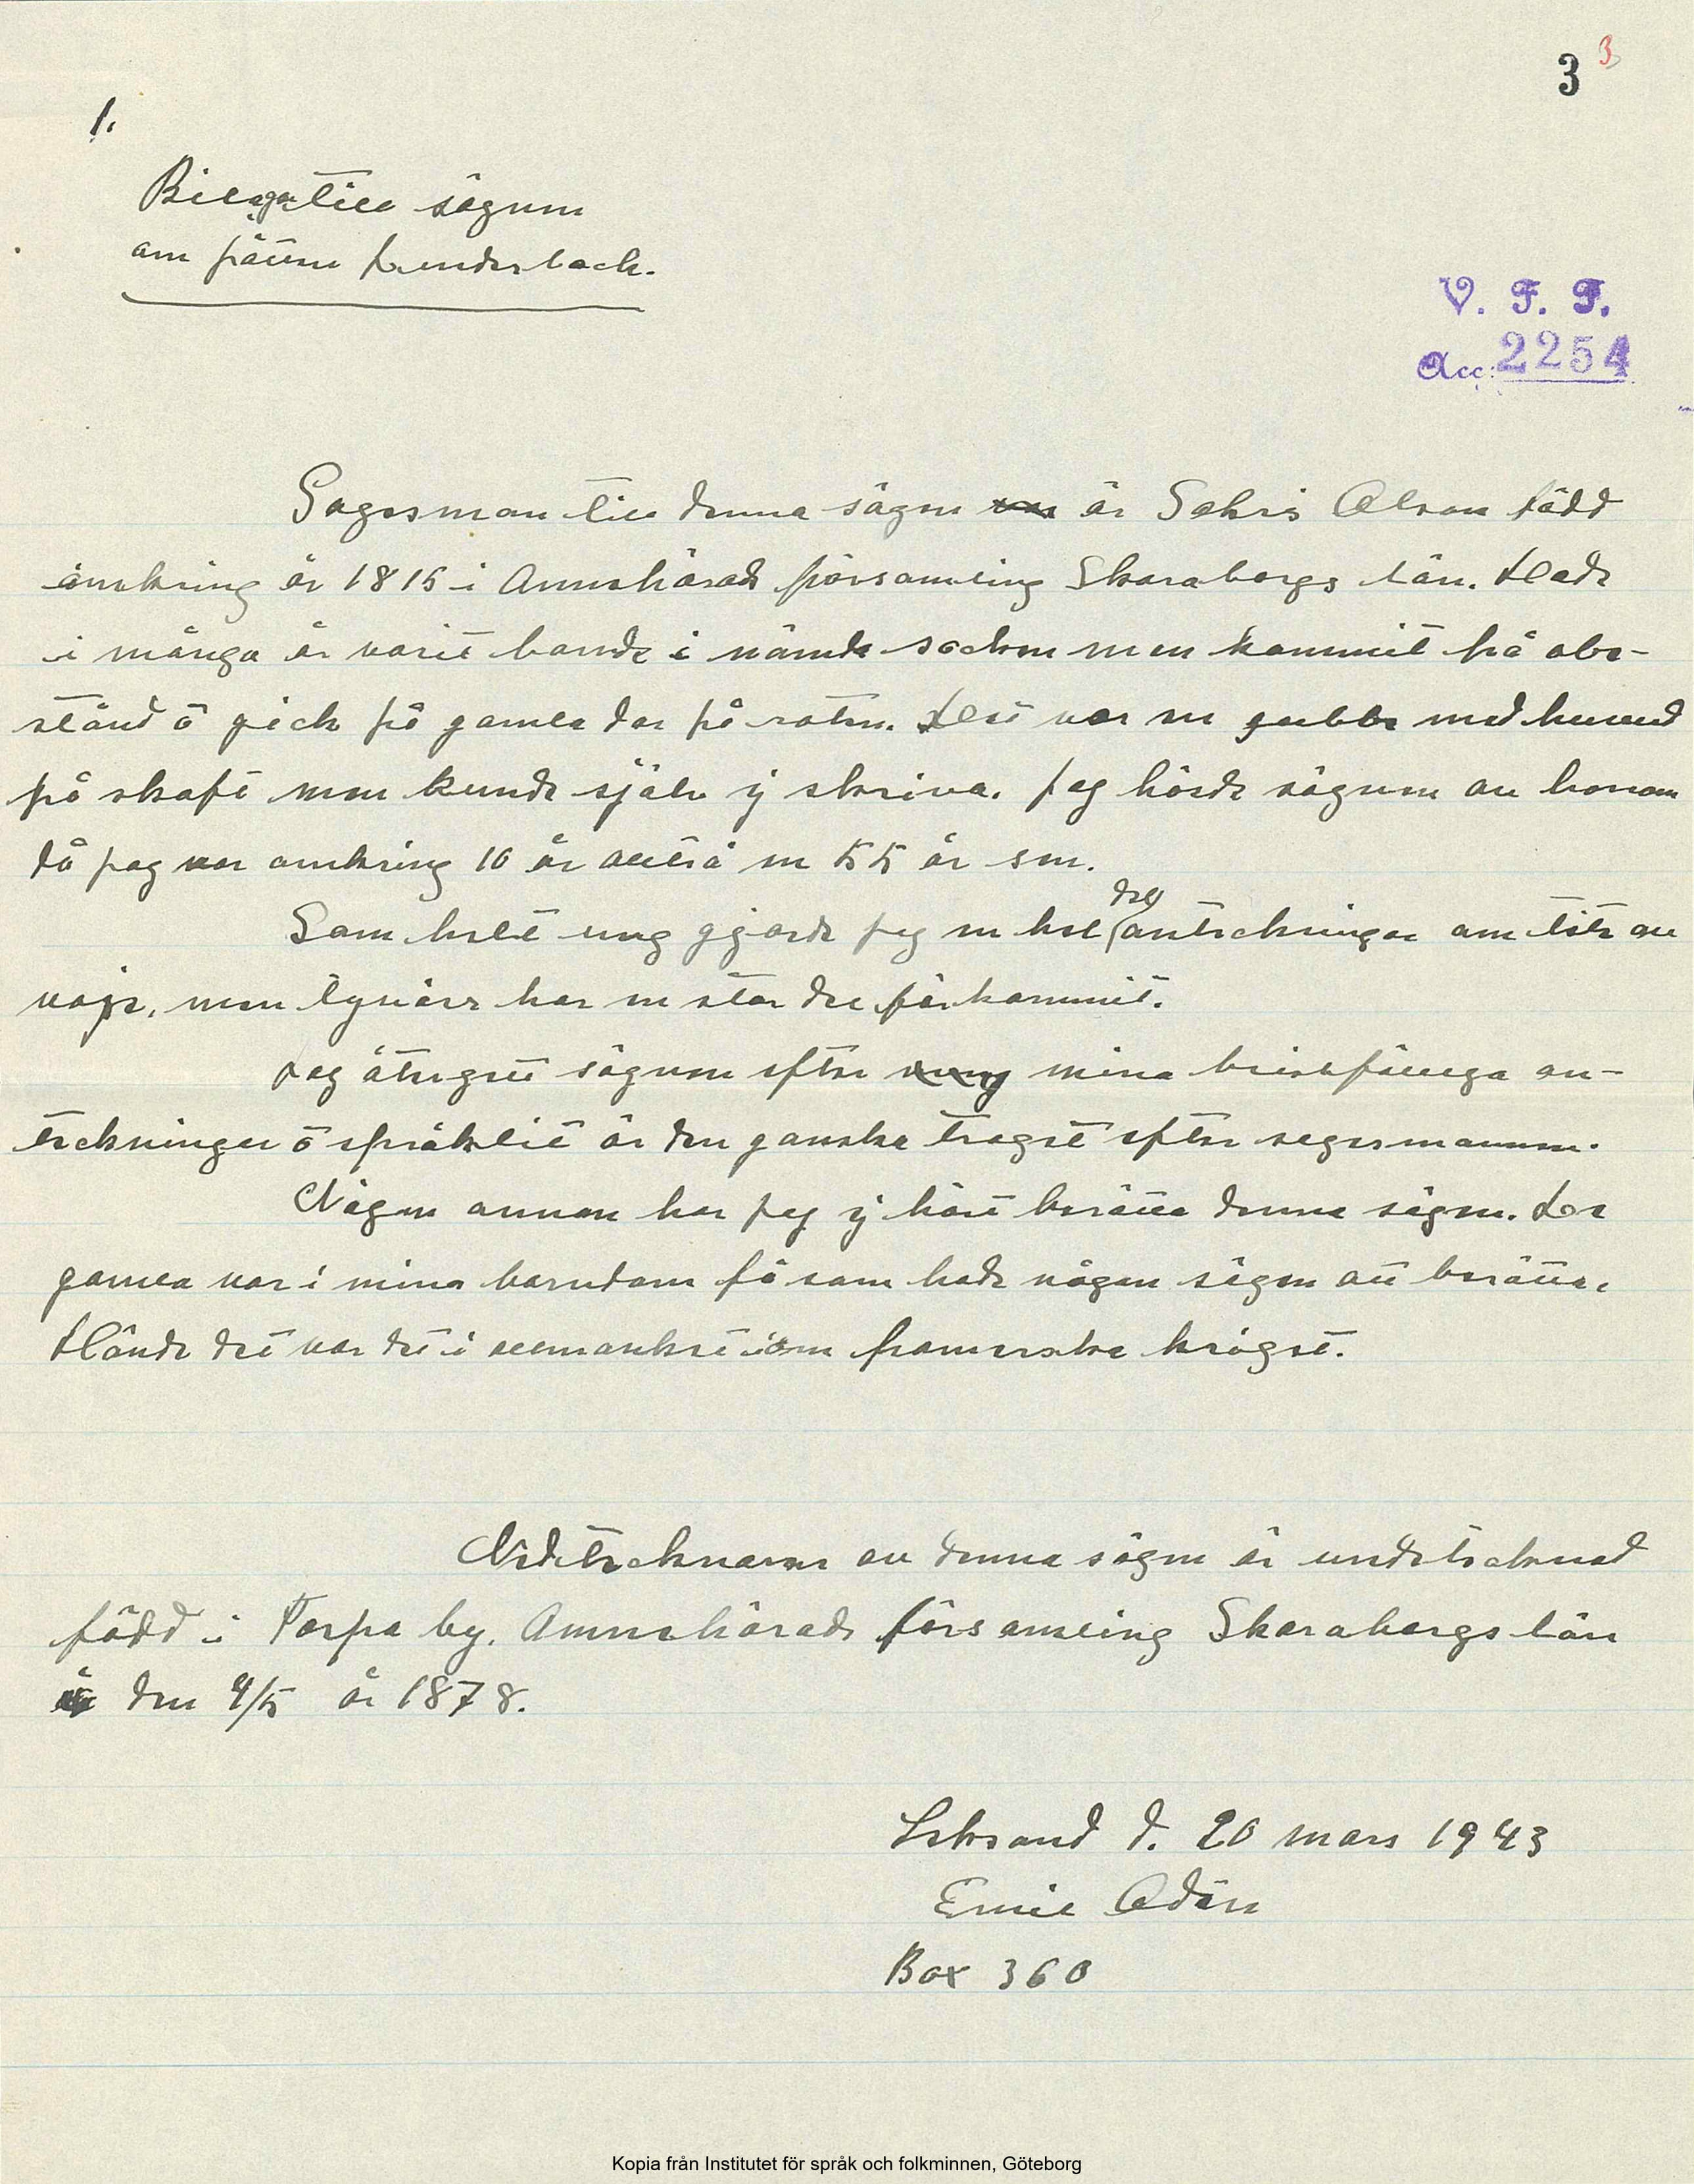 3 3
1.
Bilaga till sägnen
om jätten Funderback.
V. F. F.
Acc: 2254
Sagesman till denna sägen är Sakris Olson född
omkring år 1815 i Amnehärads församling Skaraborgs län. Hade
i många år varit bonde i nämda socken men kommit på obe-
stånd ô gick på gamla dar på roten. Det var en gubbe med huvud
på skaft men kunde själv ij skriva. Jag hörde sägnen av honom
då jag var omkring 10 år alltså en 55 år sen.
Som helt ung gjorde jag en hel del antekningar om lite av
varje, men tyvärr har en stor del förkommit.
Jag återgett sägnen efter mina bristfälliga an-
tekningar ô språklit är den ganska troget efter sagesmannen.
Någon annan har jag ij hört berätta denna sägen. De
gamla var i min barndom få som hade någon sägen att berätta.
Hände det var det i allmänhet som franserska kriget.
Nedteknaren av denna sägen är undeteknad
född i Torpa by. Amnehärads församling Skaraborgs län
den 4/5 år 1878.
Leksand d. 20 mars 1943
Emil Odén
Box 360
Kopia från Institutet för språk och folkminnen, Göteborg